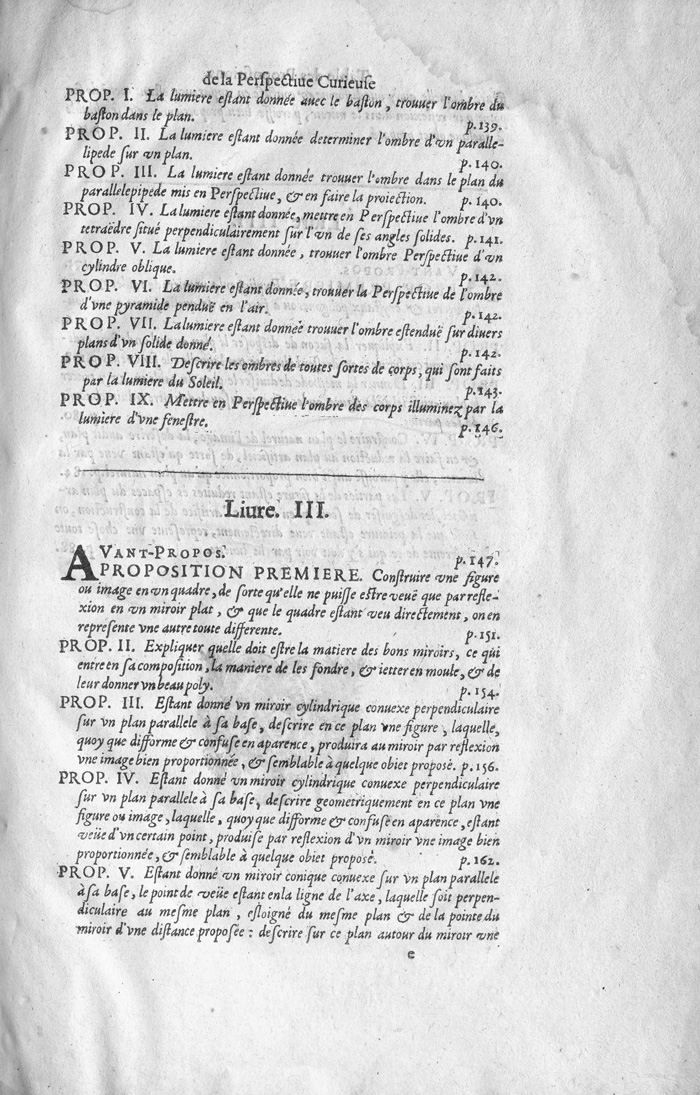 de la Perſpectiue Curieuſe
PROP. I. La lumiere eſtant donnée auec le baſton, trouuer l'ombre du
baſton dans le plan. p. 139.
PROP. II. La lumiere eſtant donnée determiner l'ombre d'vn paralle-
lipede ſur vn plan. p. 140.
PROP. III. La lumiere eſtant donnée trouuer l'ombre dans le plan du
parallelepipede mis en Perſpectiue, & en faire la proiection. p. 140.
PROP. IV. La lumiere eſtant donnée, mettre en Perſpectiue l'ombre d'vn
tetraëdre ſitué perpendiculairement ſur l'vn de ſes angles ſolides. p. 141.
PROP. V. La lumiere eſtant donnée, trouuer l'ombre Perſpectiue d'vn
cylindre oblique. p. 142.
PROP. VI. La lumiere eſtant donnée, trouuer la Perſpectiue de l'ombre
d'vne pyramide penduë en l'air. p. 142.
PROP. VII. La lumiere eſtant donnée trouuer l'ombre eſtenduë ſur diuers
plans d'vn ſolide donné. p. 142.
PROP. VIII. Deſcrire les ombres de toutes ſortes de corps, qui ſont faits
par la lumiere du Soleil. p. 143.
PROP. IX. Mettre en Perſpectiue l'ombre des corps illuminez par la
lumiere d'vne feneſtre. p. 146.
Liure. III.
AVANT-PROPOS. p. 147.
PROPOSITION PREMIERE. Conſtruire vne figure
ou image en vn quadre, de ſorte qu'elle ne puiſſe eſtre veuë que par refle-
xion en vn miroir plat, & que le quadre eſtant veu directement, on en
repreſente vne autre toute differente. p. 151.
PROP. II. Expliquer quelle doit eſtre la matiere des bons miroirs, ce qui
entre en ſa compoſition, la maniere de les fondre, & ietter en moule, & de
leur donner vn beau poly. p. 154.
PROP. III. Eſtant donné vn miroir cylindrique conuexe perpendiculaire
ſur vn plan parallele à ſa baſe, deſcrire en ce plan vne figure, laquelle,
quoy que difforme & confuſe en aparence, produira au miroir par reflexion
vne image bien proportionnée, & ſemblable à quelque obiet propoſè. p. 156.
PROP. IV. Eſtant donné vn miroir cylindrique conuexe perpendiculaire
ſur vn plan parallele à ſa baſe, deſcrire geometriquement en ce plan vne
figure ou image, laquelle, quoy que difforme & confuſe en aparence, eſtant
veüe d'vn certain point, produiſe par reflexion d'vn miroir vne image bien
proportionnée, & ſemblable à quelque obiet propoſè. p. 162.
PROP. V. Eſtant donné vn miroir conique conuexe ſur vn plan parallele
à ſa baſe, le point de veüe eſtant en la ligne de l'axe, laquelle ſoit perpen-
diculaire au meſme plan, eſloigné du meſme plan & de la pointe du
miroir d'vne diſtance propoſée : deſcrire ſur ce plan autour du miroir vne
e